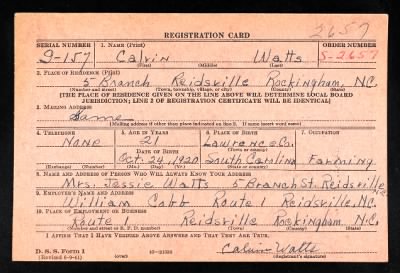 2657
REGISTRATION CARD
SERIAL NUMBER 1. NAME (Print) ORDER NUMBER
S-157 Calvin Watts S-2657
(First) (Middle) (Last)
2. PLACE OF RESIDENCE (Print)
5 Branch Reidsville Rockingham, N.C.
(Number and street) (Town, township, village, or city) (County) (State)
[THE PLACE OF RESIDENCE GIVEN ON THE LINE ABOVE WILL DETERMINE LOCAL BOARD
JURISDICTION; LINE 2 OF REGISTRATION CERTIFICATE WILL BE IDENTICAL]
3. MAILING ADDRESS
Same
[Mailing address if other than place indicated on line 2. If same insert word same]
4. TELEPHONE 5. AGE IN YEARS 6. PLACE OF BIRTH 7. OCCUPATION
None 21 Laurence Co.
DATE OF BIRTH (Town or county)
Oct. 24, 1920 South Carolina Farming
(Exchange) (Number) (Mo.) (Day) (Yr.) (State or country)
8. NAME AND ADDRESS OF PERSON WHO WILL ALWAYS KNOW YOUR ADDRESS
Mrs. Jessie Watts 5 Branch St. Reidsville
9. EMPLOYER'S NAME AND ADDRESS
William Cobb Route 1 Reidsville, N.C.
10. PLACE OF EMPLOYMENT OR BUSINESS
Route 1 Reidsville Rockingham N.C.
(Number and street or R. F. D. number) (Town) (County) (State)
I AFFIRM THAT I HAVE VERIFIED ABOVE ANSWERS AND THAT THEY ARE TRUE.
Calvin Watts
D. S. S. Form 1
(Revised 6-9-41) (over) (Registrant's signature)